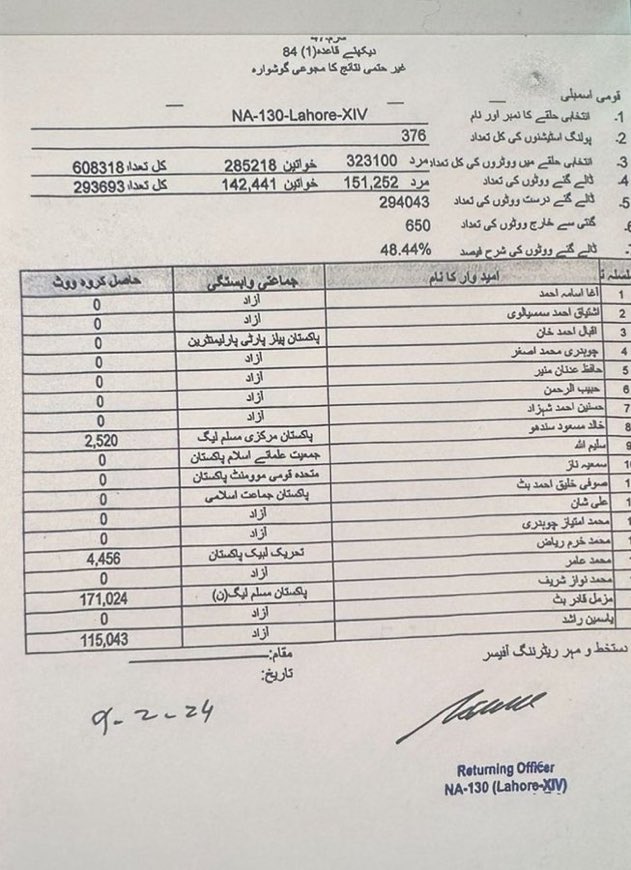 دیکھئے قاعدہ(1) 84
غیر حتمی نتائج کا مجموعی گوشوارہ
قومی اسمبلی
1. انتخابی حلقے کا نمبر اور نام NA-130-Lahore-XIV
2. پولنگ اسٹیشنوں کی کل تعداد 376
3. انتخابی حلقے میں ووٹروں کی کل تعداد مرد 323100 خواتین 285218 کل تعداد 608318
4. ڈالے گئے ووٹوں کی تعداد مرد 151,252 خواتین 142,441 کل تعداد 293693
5. ڈالے گئے درست ووٹوں کی تعداد 294043
گنتی سے خارج ووٹوں کی تعداد 650
ڈالے گئے ووٹوں کی شرح فیصد 48.44%
سلسلہ امیدوار کا نام جماعتی وابستگی حاصل کردہ ووٹ
1 آغا اسامہ احمد آزاد 0
2 اشتیاق احمد آزاد 0
3 اقبال احمد خان پاکستان پیپلز پارٹی پارلیمنٹرین 0
4 چوہدری محمد اصغر آزاد 0
5 حافظ عدنان منیر آزاد 0
6 حبیب الرحمن آزاد 0
7 حسنین احمد شہزاد آزاد 0
8 خالد مسعود سندھو پاکستان مرکزی مسلم لیگ 2,520
9 سلیم اللہ جمعیت علمائے اسلام پاکستان 0
سمعیہ ناز متحدہ قومی موومنٹ پاکستان 0
صوفی خلیق احمد بٹ پاکستان جماعت اسلامی 0
علی شان آزاد 0
محمد امتیاز چوہدری آزاد 0
محمد خرم ریاض تحریک لبیک پاکستان 4,456
محمد عامر آزاد 0
محمد نواز شریف پاکستان مسلم لیگ(ن) 171,024
مزمل قادر بٹ آزاد 0
یاسمین راشد آزاد 115,043
دستخط و مہر ریٹرننگ آفیسر
مقام:
تاریخ:
9-2-24
Returning Officer
NA-130 (Lahore-XIV)